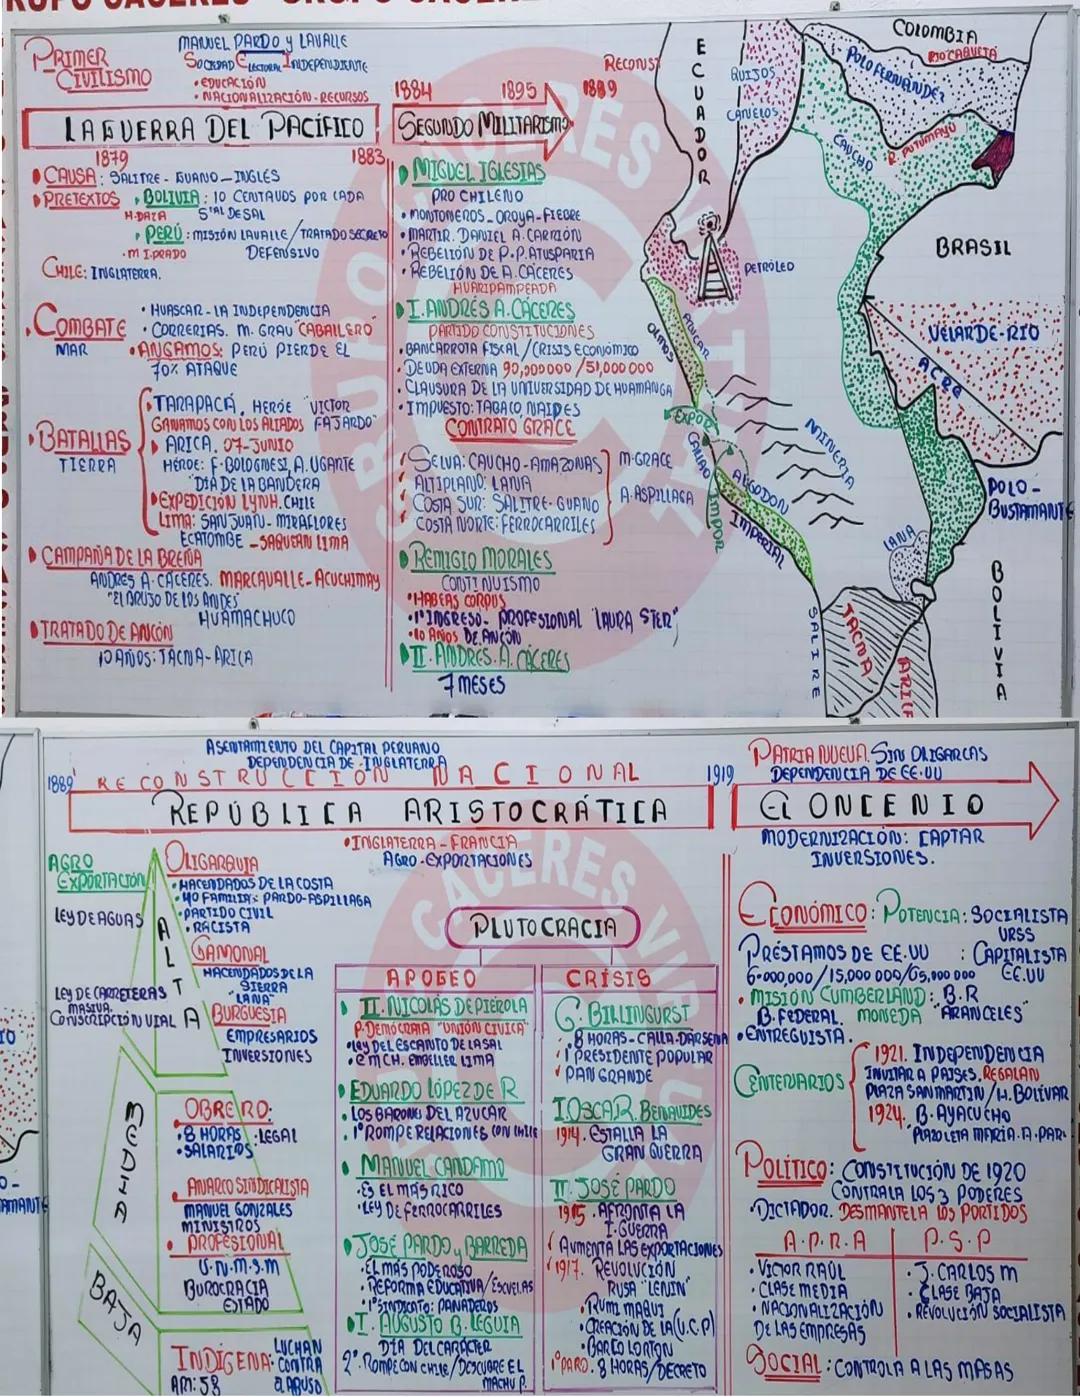 PRIMER CIVILISMO
MANUEL PARDO Y LAVALLE
SOCIEDAD ELECTORAL INDEPENDIENTE
• EDUCACIÓN
• NACIONALIZACIÓN - RECURSOS
LA GUERRA DEL PACÍFICO
1879
1883
CAUSA: SALITRE - GUANO - INGLÉS
PRETEXTOS • BOLIVIA: 10 CENTAVOS POR CADA
H. DAZA 5TAL DE SAL
• PERÚ: MISIÓN LAVALLE/TRATADO SECRETO
• M I. PRADO DEFENSIVO
CHILE: INGLATERRA.
COMBATE
MAR
• HUASCAR - LA INDEPENDENCIA
• CORRERIAS. M. GRAU "CABALLERO"
• ANGAMOS: PERÚ PIERDE EL
70% ATAQUE
BATALLAS
TIERRA
TARAPACÁ, HERÓE "VICTOR
GANAMOS CON LOS ALIADOS FAJARDO"
ARICA. 07-JUNIO
HÉROE: F. BOLOGNESI, A. UGARTE
"DÍA DE LA BANDERA
EXPEDICIÓN LYNH. CHILE
LIMA: SAN JUAN - MIRAFLORES
ECATOMBE - SAQUEAN LIMA
CAMPAÑA DE LA BREÑA
ANDRÉS A. CÁCERES. MARCAVALLE - ACUCHIMAY
"EL BRUJO DE LOS ANDES"
HUAMACHUCO
TRATADO DE ANCÓN
10 AÑOS: TACNA - ARICA
1884
1895
1889
RECONST
SEGUNDO MILITARISMO
MIGUEL IGLESIAS
PRO CHILENO
• MONTONEROS - OROYA - FIEBRE
• MARTIR. DANIEL A. CARRIÓN
• REBELIÓN DE P.P. ATUSPARIA
• REBELIÓN DE A. CÁCERES
HUARIPAMPEADA
I. ANDRÉS A. CÁCERES
PARTIDO CONSTITUCIONES
• BANCARROTA FISCAL / CRISIS ECONÓMICO
• DEUDA EXTERNA 90,000000 / 51,000000
• CLAUSURA DE LA UNIVERSIDAD DE HUAMANGA
• IMPUESTO: TABACO NAIPES
CONTRATO GRACE
SELVA: CAUCHO - AMAZONAS
ALTIPLANO: LANA
COSTA SUR: SALITRE - GUANO
COSTA NORTE: FERROCARRILES
M. GRACE
A. ASPILLAGA
REMIGIO MORALES
CONTINUISMO
• HABEAS CORPUS
• 1° INGRESO - PROFESIONAL "LAURA STER"
• 10 AÑOS DE ANCÓN
II. ANDRES. A. CÁCERES
7 MESES
ECUADOR
QUIJOS
CANELOS
COLOMBIA
RIO CAQUETÁ
POLO FERNÁNDEZ
CAUCHO
R. PUTUMAYO
PETRÓLEO
BRASIL
VELARDE - RIO
ACRE
OLMOS
AZUCAR
EXPOR
CALLAO
IMPOR
ALGODON
IMPERIAL
MINERIA
POLO -
BUSTAMANTE
LANA
BOLIVIA
SALIRE
TACNA
ASENTAMIENTO DEL CAPITAL PERUANO
DEPENDENCIA DE - INGLATERRA
1889
RECONSTRUCCIÓN NACIONAL
1919
REPÚBLICA ARISTOCRÁTICA
• INGLATERRA - FRANCIA
AGRO - EXPORTACIONES
AGRO
EXPORTACIÓN
LEY DE AGUAS
LEY DE CARRETERAS
MASIVA.
CONSCRIPCIÓN VIAL
ALTA
OLIGARQUIA
• HACENDADOS DE LA COSTA
• 40 FAMILIAS PARDO - ASPILLAGA
• PARTIDO CIVIL
• RACISTA
GAMONAL
HACENDADOS DE LA
SIERRA
"LANA"
BURGUESIA
EMPRESARIOS
INVERSIONES
OBRERO:
• 8 HORAS : LEGAL
• SALARIOS
ANARCO SINDICALISTA
MANUEL GONZALES
MINISTROS
PROFESIONAL
U.N.M.S.M
BUROCRACIA
ESTADO
BAJA
INDÍGENA: LUCHAN
CONTRA
PLUTOCRACIA
APOGEO
II. NICOLÁS DE PIÉROLA
P. DEMÓCRATA "UNIÓN CIVICA"
• LEY DEL ESCANTO DE LA SAL
EDUARDO LÓPEZ DE R
• LOS BARONES DEL AZUCAR
• 1° ROMPE RELACIONES CON CHILE
MANUEL CANDAMO
• ES EL MÁS RICO
• LEY DE FERROCARRILES
JOSÉ PARDO y BARREDA
• EL MÁS PODEROSO
• REFORMA EDUCATIVA/ESCUELAS
• 1° SINDICATO: PANADEROS
I. AUGUSTO B. LEGUIA
DÍA DEL CARÁCTER
2°. ROMPE CON CHILE / DESCUBRE EL
MACHU P.
CRÍSIS
G. BILLINGURST
• 8 HORAS - CALLA - DARSENA
1° PRESIDENTE POPULAR
PAN GRANDE
I. OSCAR. BENAVIDES
1914. ESTALLA LA
GRAN GUERRA
II. JOSÉ PARDO
1915. AFRONTA LA
I. GUERRA
AUMENTA LAS EXPORTACIONES
1917. REVOLUCIÓN
RUSA "LENIN"
• RUMI MAQUI
• CREACIÓN DE LA (U.C.P)
• BARCO LORTON
1° PARO. 8 HORAS/DECRETO
PATRIA NUEVA. SIN OLIGARCAS
DEPENDENCIA DE EE.UU
EL ONCENIO
MODERNIZACIÓN: CAPTAR
INVERSIONES.
ECONÓMICO: POTENCIA: SOCIALISTA
URSS
PRÉSTAMOS DE EE.UU : CAPITALISTA
6.000,000 / 15,000 000 / 65,000 000 EE.UU
• MISIÓN CUMBERLAND: B.R
B. FEDERAL. MONEDA "ARANCELES"
• ENTREGUISTA.
CENTENARIOS
1921. INDEPENDENCIA
INVITAR A PAISES. REGALAN
PLAZA SAN MARTIN / H. BOLÍVAR
1924. B. AYACUCHO
POLÍTICO: CONSTITUCIÓN DE 1920
CONTROLA LOS 3 PODERES
• DICTADOR. DESMANTELA LOS PARTIDOS
A.P.R.A
• VICTOR RAÚL
• CLASE MEDIA
• NACIONALIZACIÓN
DE LAS EMPRESAS
P.S.P
• J. CARLOS M
• CLASE BAJA
• REVOLUCIÓN SOCIALISTA
SOCIAL: CONTROLA A LAS MASAS